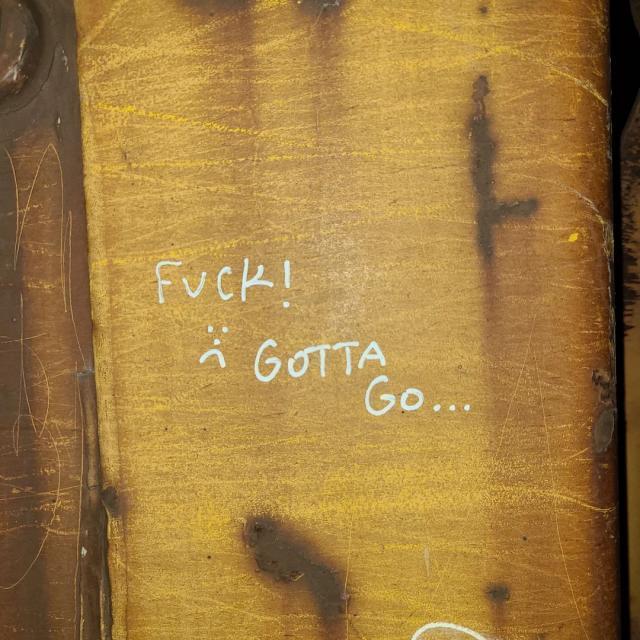 FVCK!
:( GOTTA
GO...